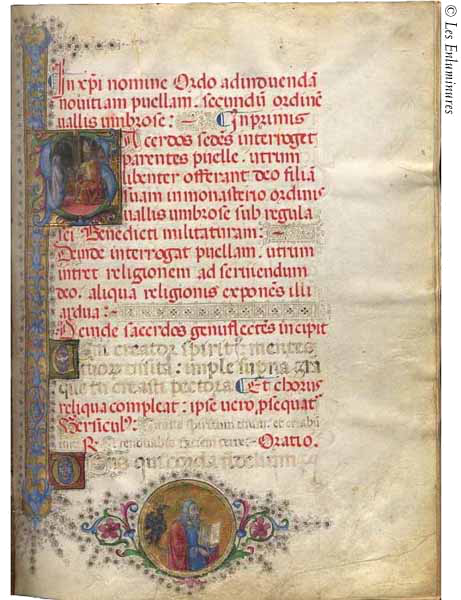 In xp̄i nomine Ordo ad induendā
novitiam puellam. secundū ordinē
vallis umbrose: Inprimis
Sacerdos sedēs interroget
parentes puelle. utrum
libenter offerant deo filiā
suam in monasterio ordinis
vallis umbrose sub regula
sci Benedicti militaturam:
Deinde interrogat puellam. utrum
intret religionem ad serviendum
deo. aliqua religionis exponēs illi
ardua:
Deinde sacerdos genuflectēs incipit
Veni creator spiritus mentes
tuorum visita: imple superna gra
que tu creasti pectora. Et chorus
reliqua compleat: ipse vero, psequat
Versiculū: Emitte spiritum tuum. et creabū
tur. R. Et renovabis faciem terre: Oratio.
Deus qui corda fidelium
© Les Enluminures